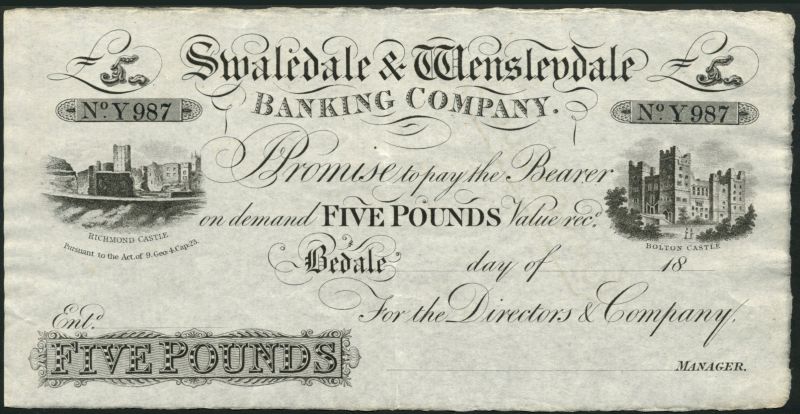 £5 Swaledale & Wensleydale £5
BANKING COMPANY.
No. Y 987 No. Y 987
I Promise to pay the Bearer
on demand FIVE POUNDS Value recd.
RICHMOND CASTLE
BOLTON CASTLE
Pursuant to the Act. of 9. Geo. 4. Cap. 23.
Bedale day of 18
Entd. For the Directors & Company.
FIVE POUNDS
MANAGER.